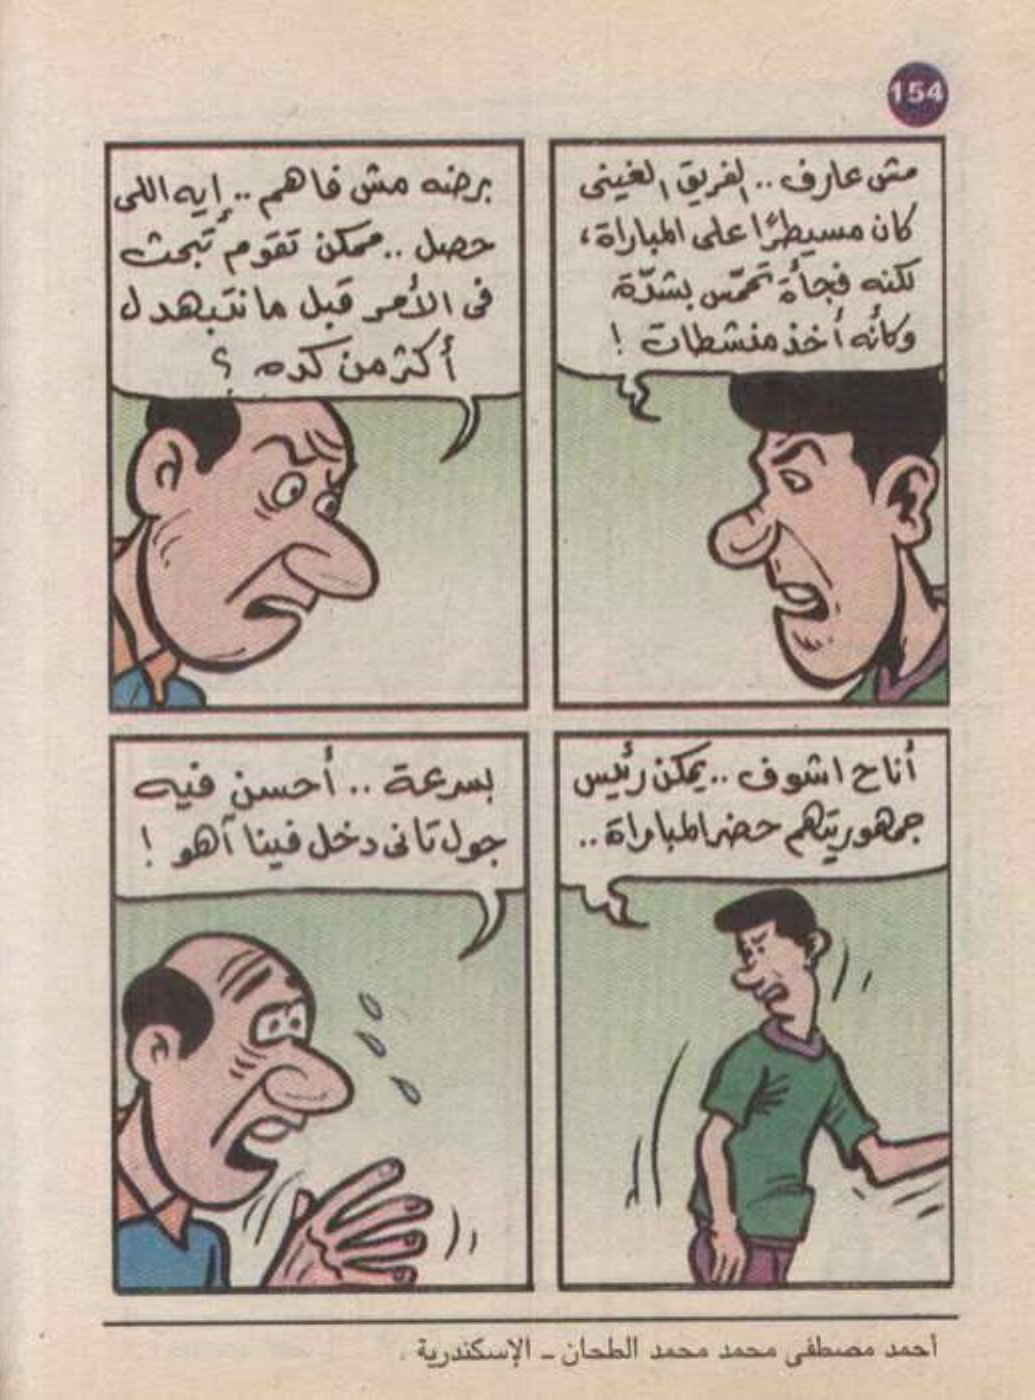 154
مش عارف .. الفريق الغينى
كان مسيطرًا على المباراة،
لكنه فجأة تحمّس بشدّة
وكأنه أخذ منشطات !
برضه مش فاهم .. إيه اللى
حصل .. ممكن تقوم تبحث
فى الأمر قبل ما نتبهدل
أكثر من كده ؟
أنا ح اشوف .. يمكن رئيس
جمهوريتهم حضر المباراة ..
بسرعة .. أحسن فيه
جول تانى دخل فينا أهو !
أحمد مصطفى محمد محمد الطحان - الإسكندرية .